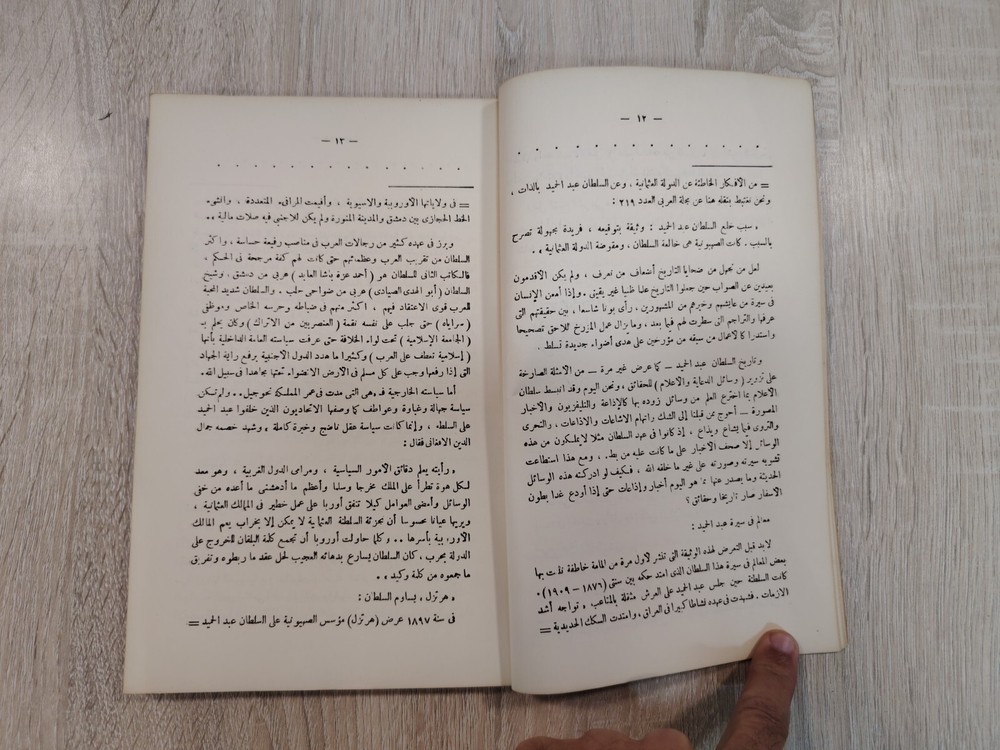 — ١٢ —
= من الأفكار الخاطئة عن الدولة العثمانية ، وعن السلطان عبد الحميد بالذات ،
ونحن نغتبط بنقله هنا عن مجلة العربي العدد ٢١٩ :
« سبب خلع السلطان عبد الحميد : وثيقة بتوقيعه ، فريدة مجهولة تصرح
بالسبب . كانت الصهيونية هى خالعة السلطان ، ومقوضة الدولة العثمانية » .
لعل من نجهل من ضحايا التاريخ أضعاف من نعرف ، ولم يكن الأقدمون
بعيدين عن الصواب حين جعلوا التاريخ علما ظنيا غير يقينى . وإذا أمعن الإنسان
فى سيرة من عايشهم وخبرهم من المشهورين ، رأى بونا شاسعا ، بين حقيقتهم التى
عرفها والتراجم التى سطرت لهم فيما بعد ، وما يزال عمل المؤرخ للاحق تصحيحا
واستدراكا لأعمال من سبقه من مؤرخين على هدى أضواء جديدة تسلط .
وتاريخ السلطان عبد الحميد — كما عرض غير مرة — من الأمثلة الصارخة
على تزوير ( وسائل الدعاية والاعلام ) للحقائق ، ونحن اليوم وقد انبسط سلطان
الاعلام بما اخترع العلم من وسائل زوده بها كالإذاعة والتليفزيون والأخبار
المصورة — أحوج ممن قبلنا إلى الشك واتهام الاشاعات والاذاعات ، والتحرى
والتروى فيما يشاع ويذاع ، إذ كانوا فى عهد السلطان مثلا لايملكون من هذه
الوسائل إلا صحف الاخبار على ما كانت عليه من بطء ، ومع هذا استطاعت
تشويه سيرته وصورته على غير ما خلقه الله ، فكيف لو ادركته هذه الوسائل
الحديثة وما يصدر عنها مما هو اليوم أخبار وإذاعات حتى إذا أودع غدا بطون
الاسفار صار تاريخا وحقائق ؟
معالم فى سيرة عبد الحميد :
لابد قبل التعرض لهذه الوثيقة التى تنشر لأول مرة من المامة خاطفة نأت بها
بعض المعالم فى سيرة هذا السلطان الذى امتد حكمه بين سنتى (١٨٧٦ – ١٩٠٩) .
كانت السلطنة حين جلس عبد الحميد على العرش مثقلة بالمتاعب ، تواجه أشد
الازمات . فشهدت فى عهده نشاطا كبيرا فى العراق ، وامتدت السكك الحديدية =
— ١٣ —
= فى ولاياتها الأوروبية والاسيوية ، وأقيمت المرافىء المتعددة ، وانشىء
الخط الحجازى بين دمشق والمدينة المنورة ولم يكن للاجنبى فيه صلات مالية . .
وبرز فى عهده كثير من رجالات العرب فى مناصب رفيعة حساسة ، واكثر
السلطان من تقريب العرب وعظمائهم حتى كانت لهم كفة مرجحة فى الحكم ،
فالكاتب الثانى للسلطان هو ( أحمد عزة باشا العابد ) عربى من دمشق ، وشيخ
السلطان ( أبو الهدى الصيادى ) عربى من ضواحى حلب . والسلطان شديد المحبة
للعرب قوى الاعتقاد فيهم ، اكثر منهم فى ضباطه وحرسه الخاص وموظفى
( مراياه ) حتى جلب على نفسه نقمة ( العنصريين من الاتراك ) وكان يحلم بـ
( الجامعة الإسلامية ) تحت لواء الخلافة حتى عرفت سياسته العامة الداخلية بأنها
( إسلامية تعطف على العرب ) وكثيرا ما هدد الدول الأجنبية برفع راية الجهاد
التى إذا رفعها وجب على كل مسلم فى الأرض الانضواء تحتها مجاهدا فى سبيل الله.
أما سياسته الخارجية فهى التى مدت فى عمر المملكة نحو جيل . . ولم تكن
سياسة جهالة وغباوة وعواطف كما وصفها الاتحاديون الذين خلفوا عبد الحميد
على السلطة ، وإنما كانت سياسة عقل ناضج وخبرة كاملة ، وشهد خصمه جمال
الدين الافغانى فقال :
« رأيته يعلم دقائق الامور السياسية ، ومرامى الدول الغربية ، وهو معد
لكل هوة تطرأ على الملك مخرجا وسلما وأعظم ما أدهشنى ما أعده من خفى
الوسائل وأمضى العوامل كيلا تتفق أوربا على عمل خطير فى الممالك العثمانية ،
ويريها عيانا محسوسا أن تجزئة السلطنة العثمانية لا يمكن إلا بخراب يعم الممالك
الأوربية بأسرها . . وكلما حاولت أوروبا أن تجمع كلمة البلقان للخروج على
الدولة بحرب ، كان السلطان يسارع بدهائه العجيب لحل عقد ما ربطوه وتفريق
ما جمعوه من كلمة وكيد » .
« هرتزل » يساوم السلطان :
فى سنة ١٨٩٧ عرض (هرتزل) مؤسس الصهيونية على السلطان عبد الحميد =